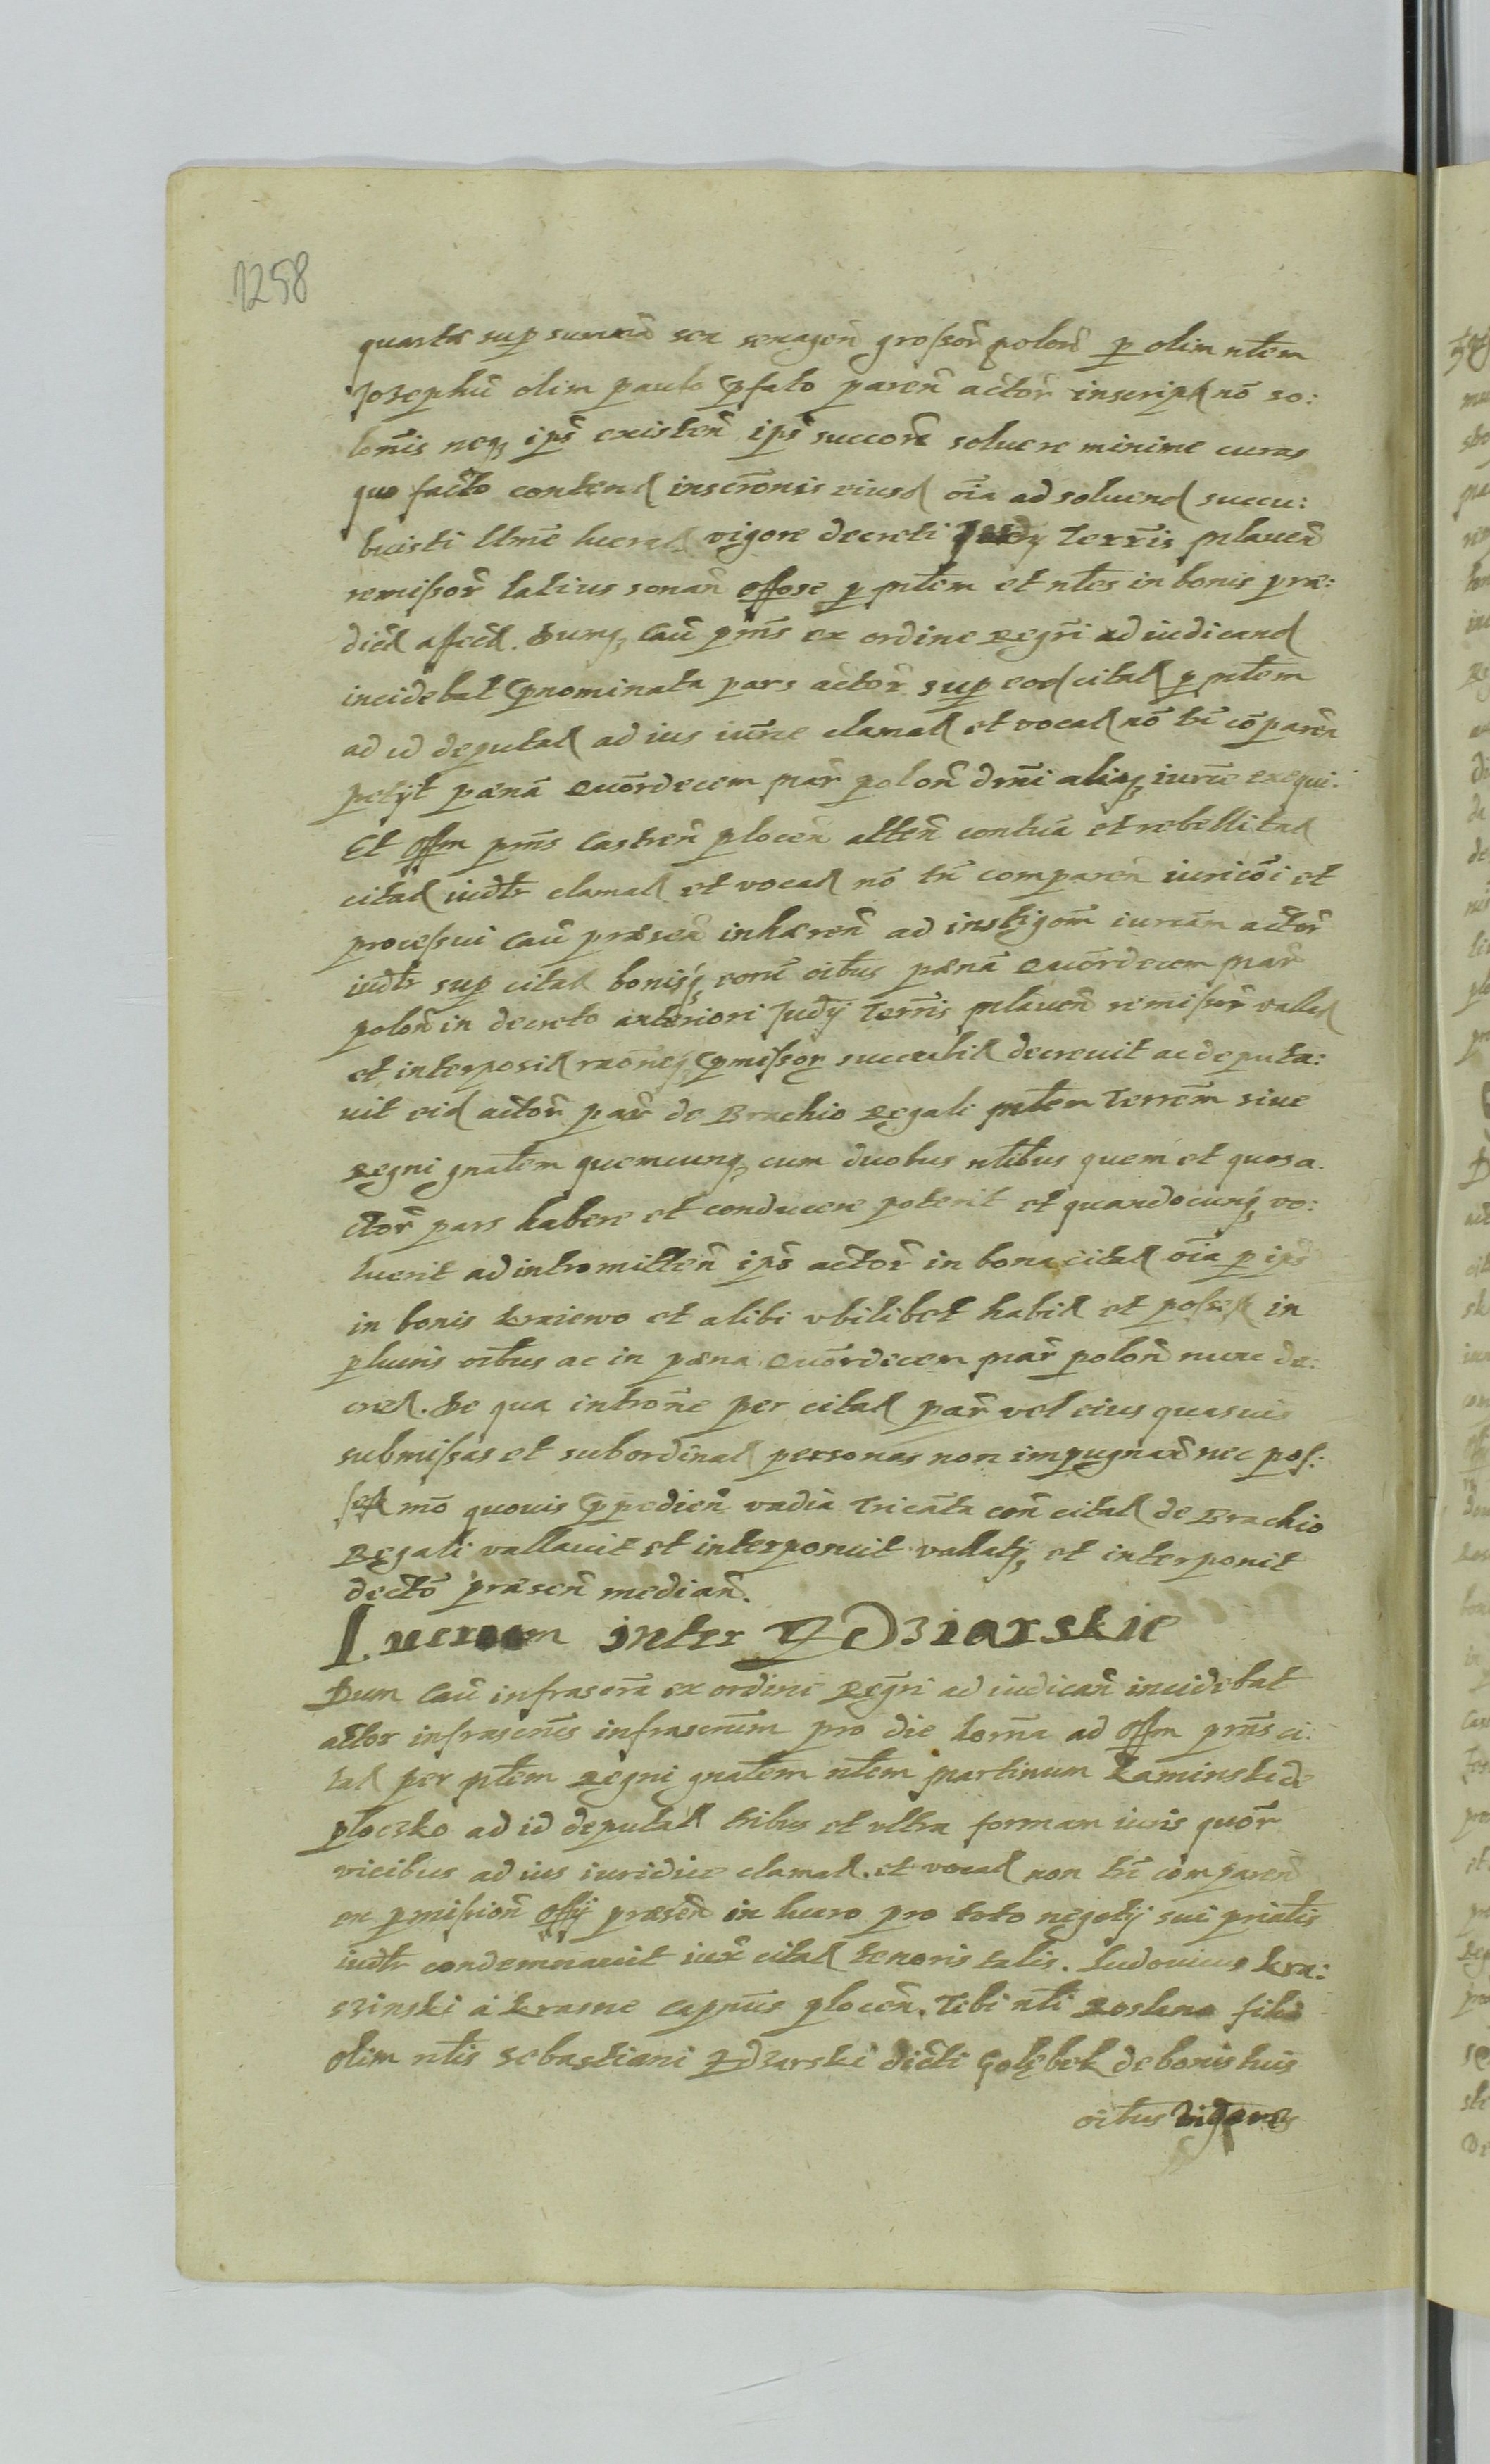 1258
quarta sup summā sex sexageñ grossoř poloñ p olim nłem
Josephū olim paulo pfato pareñ actoř inscript nō so:
lōnis neq ipš existeñ ipš succořē soluere minime curas
quo facto contend inscrōnis eiusd oīa ad soluend succu:
buisti vigore decreti Judy Terřis mlaueñ
remissoř latius sonañ offose p młem et nłes in bonis præ:
dict affect. Dumq Caū pñs ex ordine Regrī ad iudicand
incidebat pnominata pars actoř sup eod citat p młem
ad id deputat ad ius iurīe clamat et vocat nō tñ cōpareñ
petÿt pænā Quōrdecem mař poloñ dm̄i aliaq iurīe exequi.
Et offm pñs Castreñ ploceñ atteñ contuā et rebelli
citat iudłr clamat et vocat nō tñ compareñ iuri cōi et
processui Caū præseñ inhæreñ ad instigōm iureām actoř
iudłr sup citat bonisq eorū oibus pænā Quōrdecem mař
poloñ in decreto anteriori Judÿ Terřis mlaueñ remissoř vallat
et interposit raōneq pmissoř succubit decreuit ac deputa:
uit eid actoř pař de Brachio Regali młem Terrēm siue
Regni gnałem quemcunq cum duobus nłibus quem et quos a.
ctoř pars habere et conducere poterit et quandocunq vo:
luerit ad intromitteñ ipš actoř in bona citat oīa p ipš
in bonis kraiewo et alibi vbilibet habit et possess in
pluris oibus ac in pæna Quōrdecem mař poloñ nunc de:
cret. De qua intrōne per citat pař vel eius quasuis
submissas et subordinat personas non impugnañ nec pos:
sess mō quouis ppedieñ vadia Tricāta coñ citat de Brachio
Regali vallauit et interposuit vallatq et interponit
dectō præseñ mediañ.
Lucrum inter Zdziarskie
Dum Caū infrascra ex ordine Regrī ad iudicañ incidebat
actor infrascrīs infrascrīm pro die horña ad offm pñs ci:
tat per młem Regni gnałem nłem Martinum Kaminski de
płoczko ad id deputat tribus et vltra formam iuris quōr
vicibus ad ius iuridice clamat et vocat non tñ compareñ
ex pmissioñ offÿ præseñ in lucro pro toto negotÿ sui prīalis
iudłr condemnauit iux citat tenoris talis. Ludouicus kra:
szinski à krasne Capñus ploceñ. Tibi nłi Roslano filio
olim nłis Sebastiani Zdzarski dicti Gołębek de bonis tuis
oibus